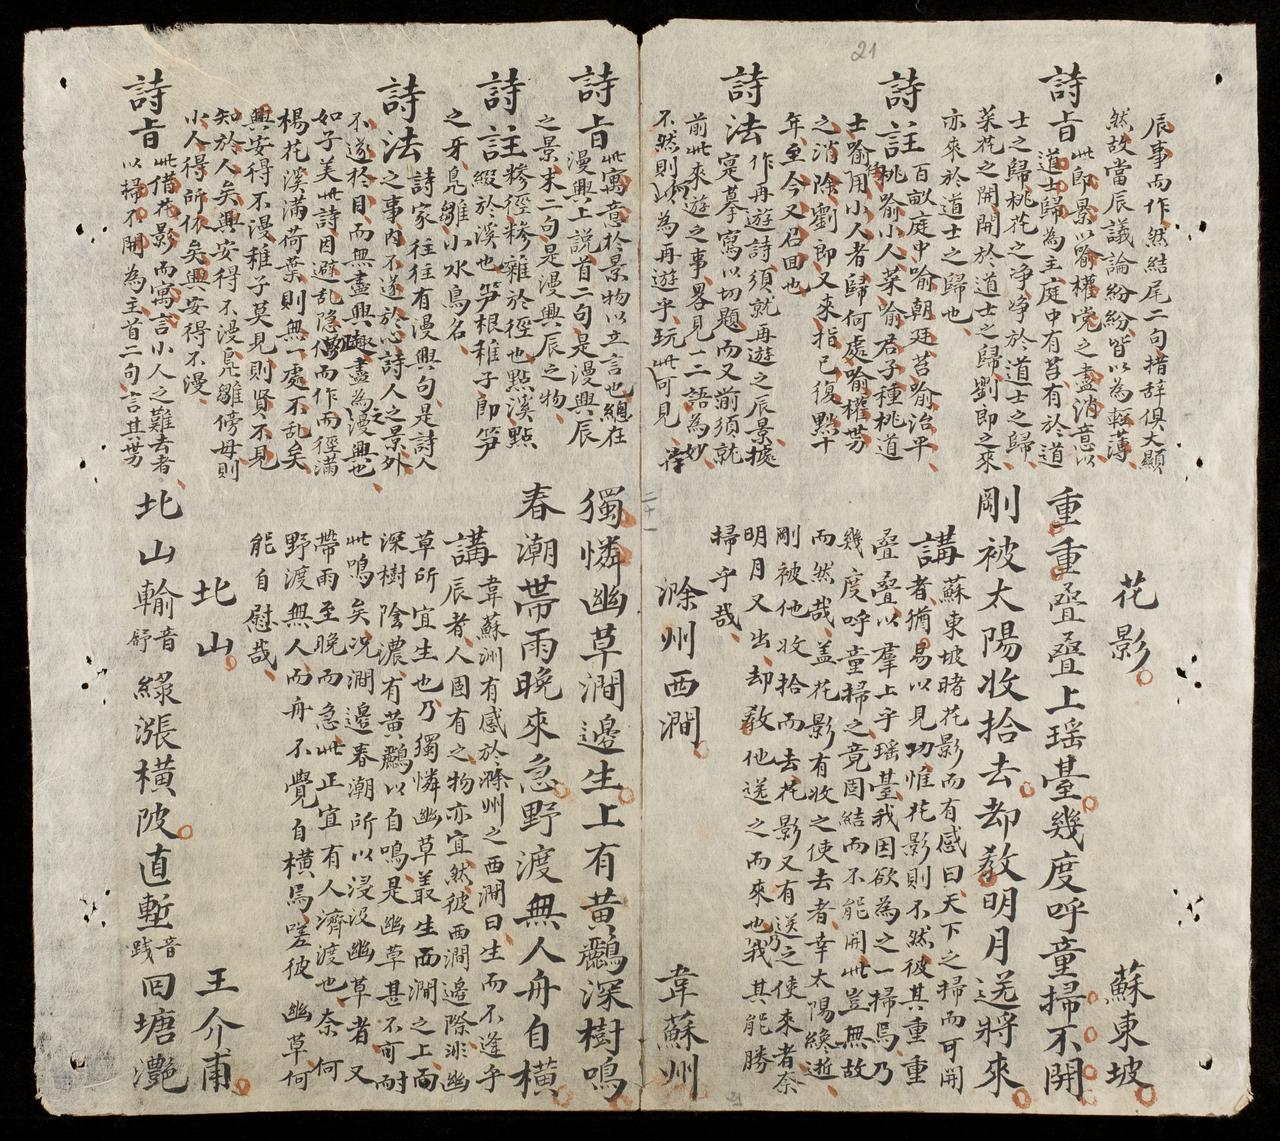 21
辰事而作然結尾二句措辞俱大顯
然故當辰議論紛紛皆以為輕薄
詩旨此即景以喻權党之盡消意以
道士歸為主庭中有苔有於道
士之歸桃花之净净於道士之歸
菜花之開開於道士之歸劉郎之來
亦來於道士之歸也
詩註百畝庭中喻朝廷苔喻治平
桃喻小人菜喻君子種桃道
士喻用小人者歸何處喻權势
之消除劉郎又來指已復點十
年至今又召回也
詩法作再遊詩須就再遊之辰景據
寔摹寫以切題而又前須就
前此來遊之事畧見一二語為妙
不然則何以為再遊乎玩此可見
花影
蘇東坡
重重叠叠上瑶臺幾度呼童掃不開
剛被太陽收拾去却教明月送將來
講蘇東坡睹花影而有感曰天下之掃而可開
者猶易以見功惟花影則不然彼其重重
叠叠以羣上乎瑶臺我因欲為之一掃焉乃
幾度呼童掃之竟固結而不能開此豈無故
而然哉盖花影有收之使去者幸太陽纔逝
剛被他收拾而去花影又有送之使來者奈
明月又出却教他送之而來也我其能勝
掃乎哉
滁州西澗
韋蘇州
二十一
獨憐幽草澗邊生上有黄鸝深樹鳴
春潮带雨晚來急野渡無人舟自横
講韋蘇州有感於滁州之西澗曰生而不逢乎
辰者人固有之物亦宜然彼西澗邊際淰幽
草所宜生也乃獨憐幽草叢生而澗之上而
深樹陰濃有黄鸝以自鳴是幽草甚不可耐
此鳴矣况澗邊春潮所以浸没幽草者又
带雨至晚而急此正宜有人濟渡也奈何
野渡無人而舟不覺自横焉嗟彼幽草何
能自慰哉
詩旨此寓意於景物以立言也總在
漫興上説首二句是漫興辰
之景末二句是漫興辰之物
詩註糝徑糝雜於徑也點溪點
綴於溪也笋根稚子即笋
之牙鳬雛小水鳥名
詩法詩家往往有漫興句是詩人
之事内不遂於心詩人之景外
不遂於目而無盡興趣盡為之漫興也
如子美此詩因避乱隐僻而作而徑满
楊花溪满荷葉則無一處不乱矣
興安得不漫稚子莫見則賢不見
知於人矣興安得不漫鳬雛傍母則
小人得所依矣興安得不漫
詩旨此借花影而寓言小人之難去者
以掃不開為主首二句言其势
北山
王介甫
北山輸音舒綠漲横陂直塹音踐回塘灔